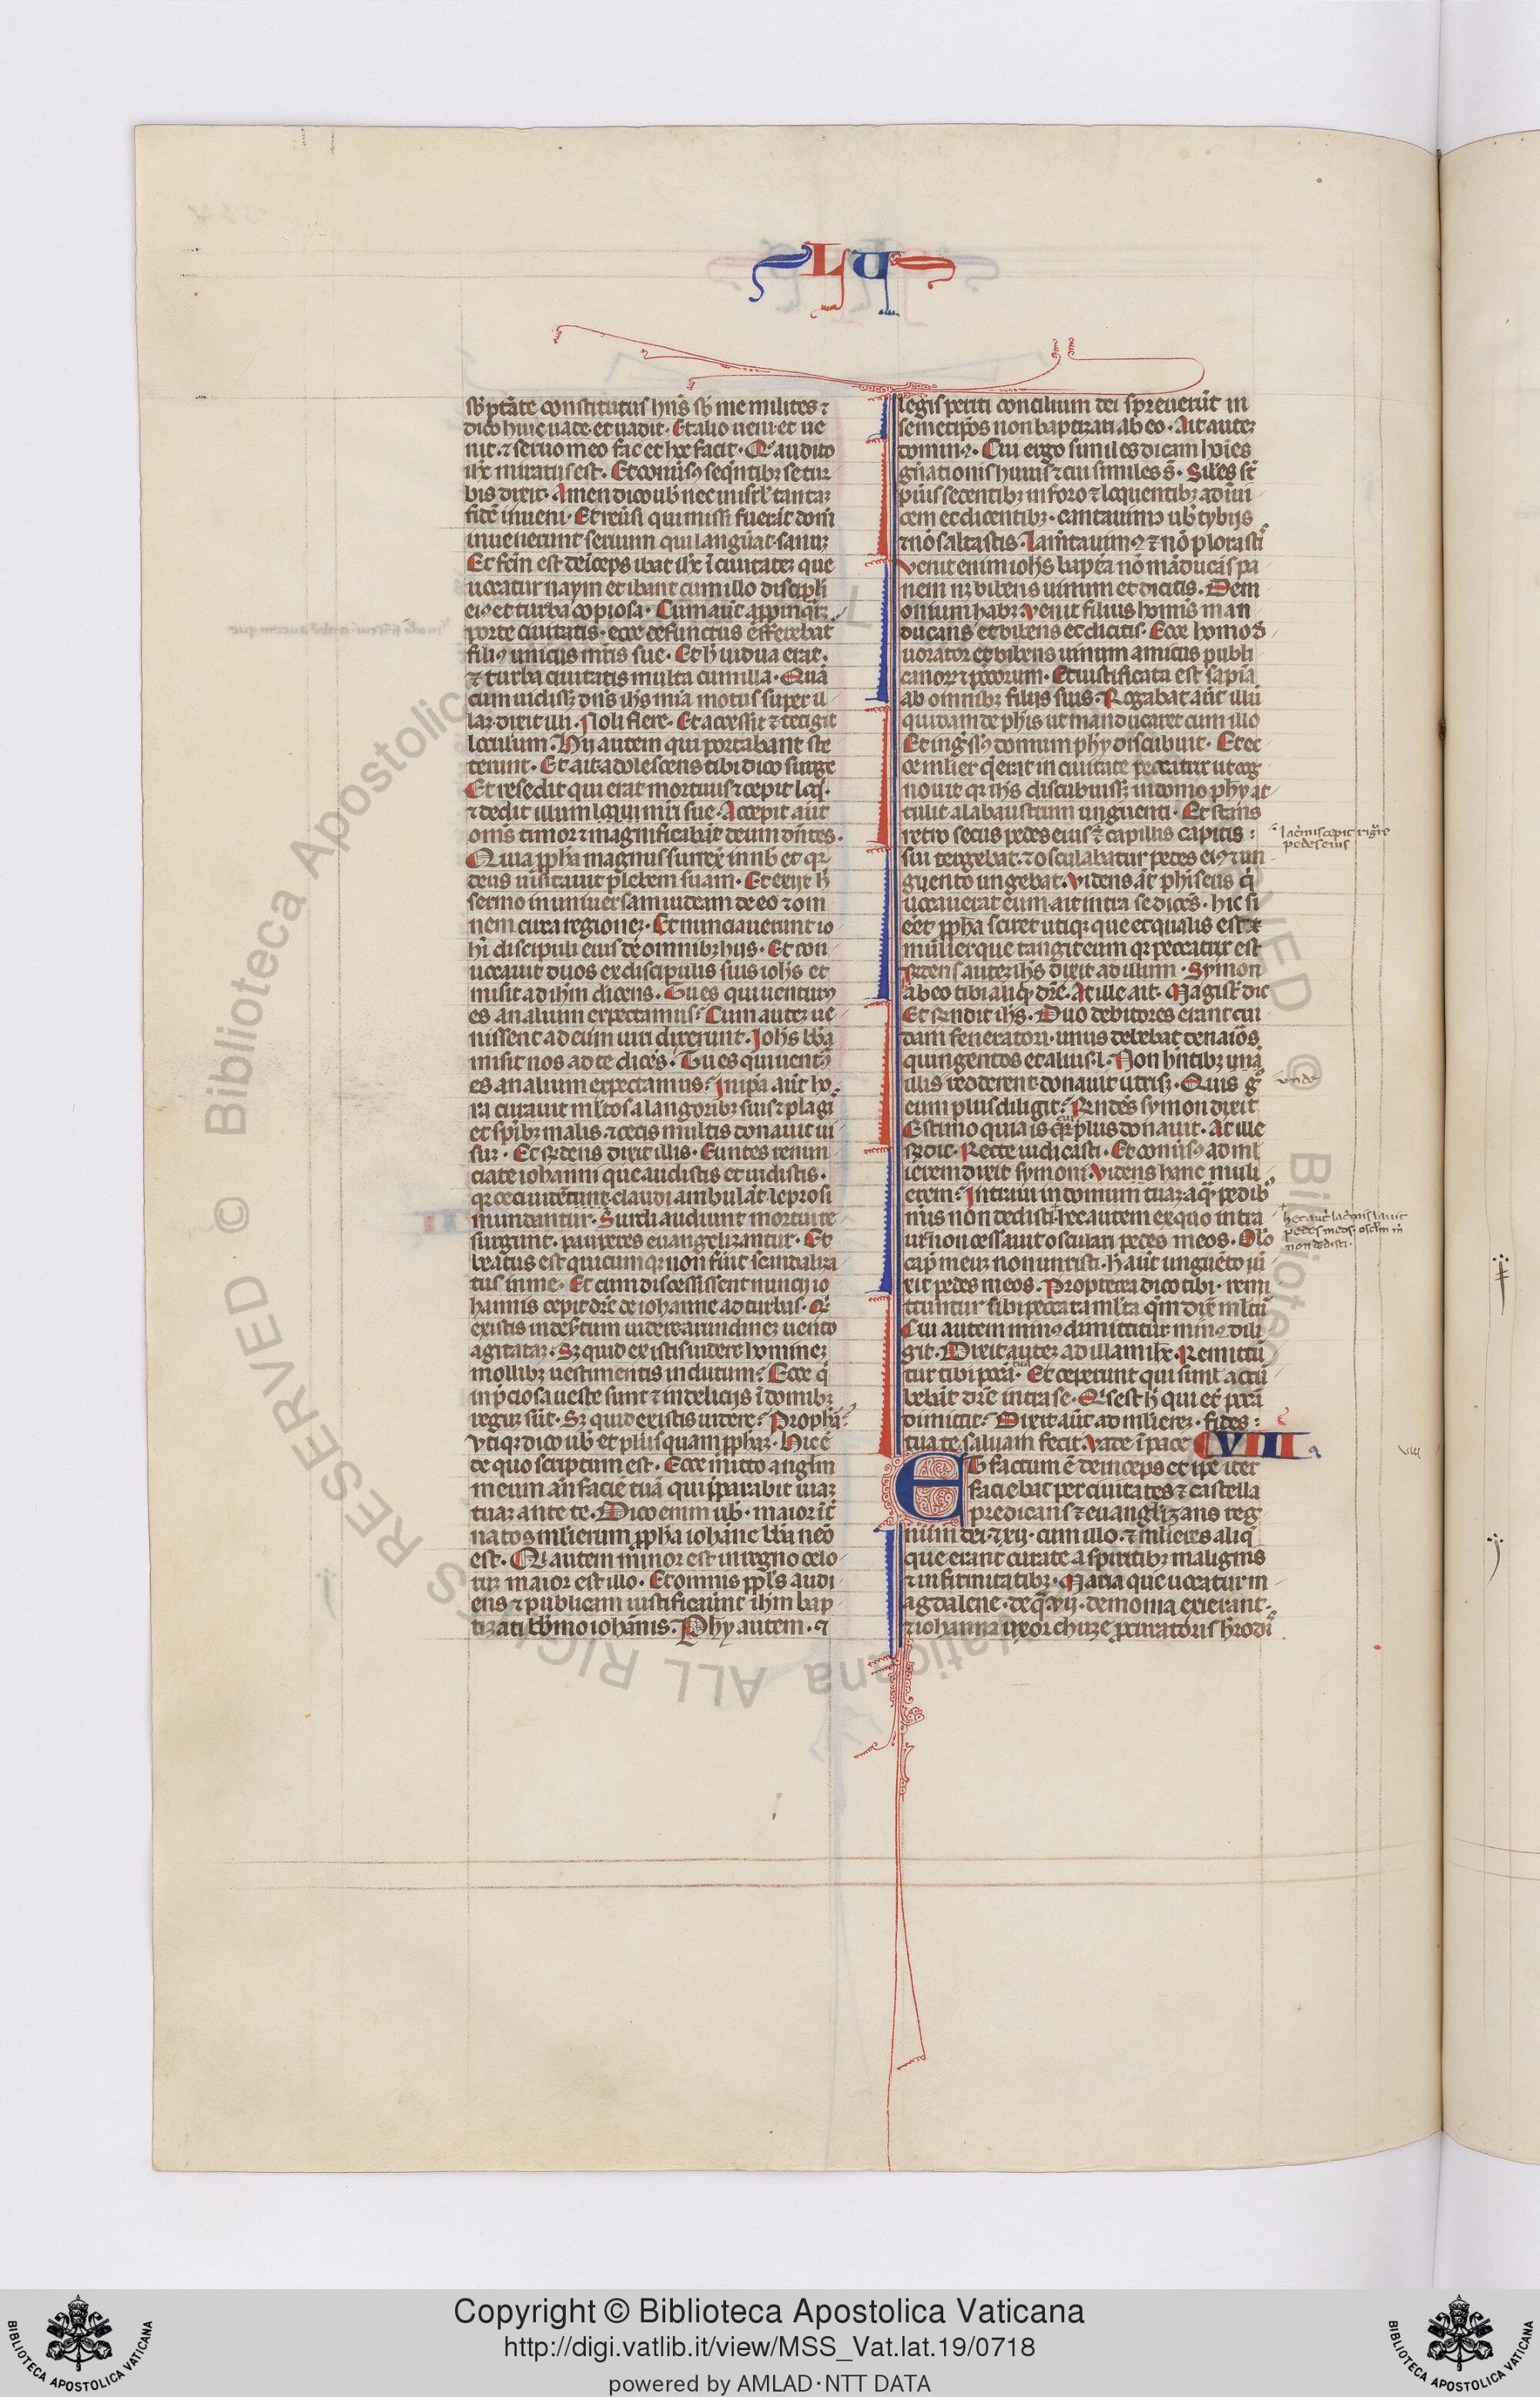 LU
sb ptāte constitutus hn̄s sb me milites ⁊
dico huic uade. et uadit. Et alio ueni. et ue
nit. ⁊ seruo meo fac et hoc facit. Q° audito
ihc miratus est. Et conuīsꝰ seqn̄tibꝫ se tur
bis dixit. Amen dico ub̄ nec in isrl̄ tantaꝫ
fidē inueni. Et reūsi qui missi fuerāt domū
inuenerunt seruum qui languāt sanuꝫ
Et fcm̄ est deīceps ibat ihc ī ciuitateꝫ que
uocatur naym et ibant cum illo discipli
eiꝰ et turba copiosa. Cum aūt appinq̄rꝫ
porte ciuitatis. ecce defunctus efferebat
filiꝰ unicus mr̄is sue. Et h̄ uidua erat.
⁊ turba ciuitatis multa cum illa. Quā
cum uidissꝫ dn̄s ihs mīa motus super il
laꝫ dixit illi. Noli flere. Et accessit ⁊ tetigit
loculum. Hij autem qui portabant ste
terunt. Et ait adolescens tibi dico surge
Et resedit qui erat mortuus ⁊ cepit loqi.
⁊ dedit illum loqui mr̄i sue. Accepit aūt
om̄s timor ⁊ magnificabāt deum dn̄tes.
Quia ppha magnus surrex̄ in nob̄ et qꝛ
deus uisitauit plebem suam. Et exijt h̄
sermo in uniuersam iudeam de eo ⁊ om
nem circa regioneꝫ. Et nunciauerunt io
hī discipuli eius de omnibꝫ hijs. Et con
uocauit duos ex discipulis suis iohs et
misit ad ihm̄ dicens. Tu es qui uenturꝰ
es an alium expectamus? Cum auteꝫ ue
nissent ad eum uiri dixerunt. Iohs bba
misit nos ad te dicēs. Tu es qui uentꝰ
es an alium expectamus? In ipa aūt ho
ra curauit ml̄tos a langoribꝫ suis ⁊ plagī
et spibꝫ malis. ⁊ cecis multis donauit ui
sū. Et rn̄dens dixit illis. Euntes renun
ciate iohanni que audistis et uidistis.
qꝛ ceci uident. claudi ambulāt. leprosi
mundantur. Surdi audiunt mortui re
surgunt. pauperes euangelizantur. Et
beatus est quicumqꝫ non fūit scandaliza
tus in me. Et cum discessissent nuncij io
hannis cepit dr̄e de iohanne ad turbas. Qͥ
existis in desertum uidere. arundineꝫ uento
agitataꝫ. Sꝫ quid existis uidere homineꝫ
mollibꝫ uestimentis indutum? Ecce qͥ
in pciosa ueste sunt ⁊ in delicijs ī domibꝫ
reguꝫ sūt. Sꝫ quid existis uidere? Propham?
Vtiqꝫ dico ub̄ et plus quam pphaꝫ. Hic ē
de quo scriptum est. Ecce mitto anglm̄
meum an̄ facie tuā qui pparabit uiaꝫ
tuaꝫ ante te. Dico enim ub̄. maior īt̄
natos mlierum ppha iohāne bba neō
est. Qͥ autem minor est in regno celo
rꝫ maior est illo. Et omnis ppls audi
ens ⁊ publicani iustificauerūt ihm̄ bap
tizati bbmo iohānis. Phy autem. ⁊
legis periti concilium dei spreuerūt in
semetip̄os non baptizati ab eo. Ait auteꝫ
dominꝰ. Cui ergo similes dicam hoīes
gn̄ationis huius ⁊ cui similes sʼ. Siles st̄
pūis sedentibꝫ in foro ⁊ loquentibꝫ ad īui
cem et dicentibꝫ. cantauimꝰ ub̄ tybijs
⁊ nō saltastis. Lam̄tauimꝰ ⁊ nō plorasti
Venit enim iohs baptā nō māducās pa
nem nꝫ bibens uinum et dicitis. Dem
onium habꝫ. Venit filius hominis man
ducans et bibens et dicitis. Ecce homo d
uorator et bibens uinum amicus publi
canoꝝ ⁊ pcc̄orum. Et iustificata est sapīa
ab omnibꝫ filijs suis. Rogabat aūt illū
quidam de phis ut manducaret cum illo
Et ingressꝰ domum phy discubuit. Et ec
ce mlier q̄ erat in ciuitate peccatrix ut cog
nouit qꝛ ihs discubuissꝫ in domo phy at
tulit alabaustrum unguenti. Et stans
retro secus pedes eius ⁊ capillis capitis
lacͥmis cepit rigare
pedes eius
sui tergebat. ⁊ osculabatur pedes eiꝰ ⁊ un
guento ungebat. Videns aūt phiseus q̄
uocauerat eum. ait intra se dicēs. hic si
eēt ppha sciret utiqꝫ que et qualis est
mulier que tangit eum qꝛ peccatrix est
Rn̄dens auteꝫ ihs dixit ad illum. Symon
habeo tibi aliqͥd dr̄e. At ille ait. Magistʼ dic
Et rn̄dit ihs. Duo debitores erant cui
dam feneratori. unus debebat denarios
quingentos et alius. l. Non hn̄tibꝫ unā
vnde
illis redderent donauit utrisqꝫ. Quis gͦ
eum plus diligit? Rn̄dēs symon dixit
Estimo quia is cui plus donauit. At ille
rn̄dit. Recte iudicasti. Et conuīsꝰ ad ml
ierem dixit symoni. Videns hanc muli
erem? Intraui in domum tuaꝫ aqͣ pedibꝰ
meis non dedisti. hec autem ex quo intra
hec aūt lacͥmis lauit
pedes meos. osclm̄ m̄
non dedisti.
uit non cessauit osculari pedes meos. Oleo
cap̄ meuꝫ non unxisti. h̄ aūt unguēto ū
xit pedes meos. Propterea dico tibi. remi
ttuntur sibi peccata ml̄ta qm̄ dix̄ ml̄tū
Cui autem minꝰ dimittitur minꝰ dili
git. Dixit auteꝫ ad illam ihc. Remittū
tur tibi pccā. Et ceperunt qui siml̄ accū
bebāt dr̄e intra se. Qͥs est h̄ qui et pccā
dimittit? Dixit aūt ad mliereꝫ. fides
tua te saluam fecit. Vade ī pace CVIII
Et factum ē deinceps et ipe iter
faciebat per ciuitates ⁊ castella
predicans ⁊ euanglizans reg
num dei. ⁊ xij. cum illo. ⁊ mlieres aliq̄
que erant curate a spiritibꝫ malignis
⁊ infirmitatibꝫ. Maria que uocatur m
agdalene. de qͣ. vij. demonia exierant.
⁊ iohanna uxor chuze procuratoris herodī
Copyright © Biblioteca Apostolica Vaticana
http://digi.vatlib.it/view/MSS_Vat.lat.19/0718
powered by AMLAD·NTT DATA
BIBLIOTECA APOSTOLICA VATICANA
BIBLIOTECA APOSTOLICA VATICANA